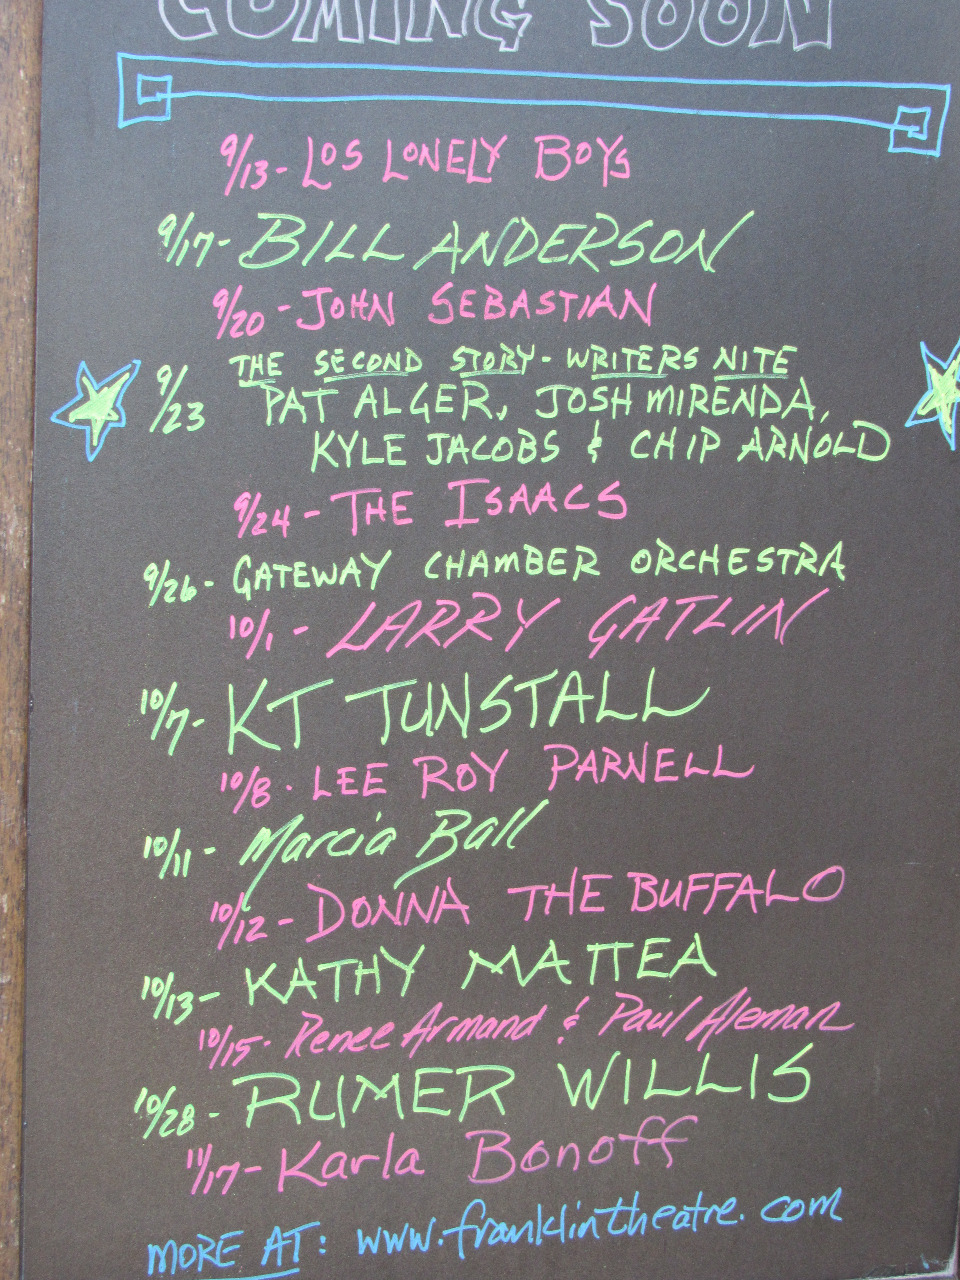 COMING SOON
9/13- LOS LONELY BOYS
9/17- BILL ANDERSON
9/20 - JOHN SEBASTIAN
THE SECOND STORY - WRITERS NITE
9/23 PAT ALGER, JOSH MIRENDA,
KYLE JACOBS & CHIP ARNOLD
9/24 - THE ISAACS
9/26 - GATEWAY CHAMBER ORCHESTRA
10/1 - LARRY GATLIN
10/7- KT TUNSTALL
10/8 · LEE ROY PARNELL
10/11 - Marcia Ball
10/12 - DONNA THE BUFFALO
10/13 - KATHY MATTEA
10/15 · Renee Armand & Paul Aleman
10/28 - RUMER WILLIS
11/17 - Karla Bonoff
MORE AT: www.franklintheatre.com